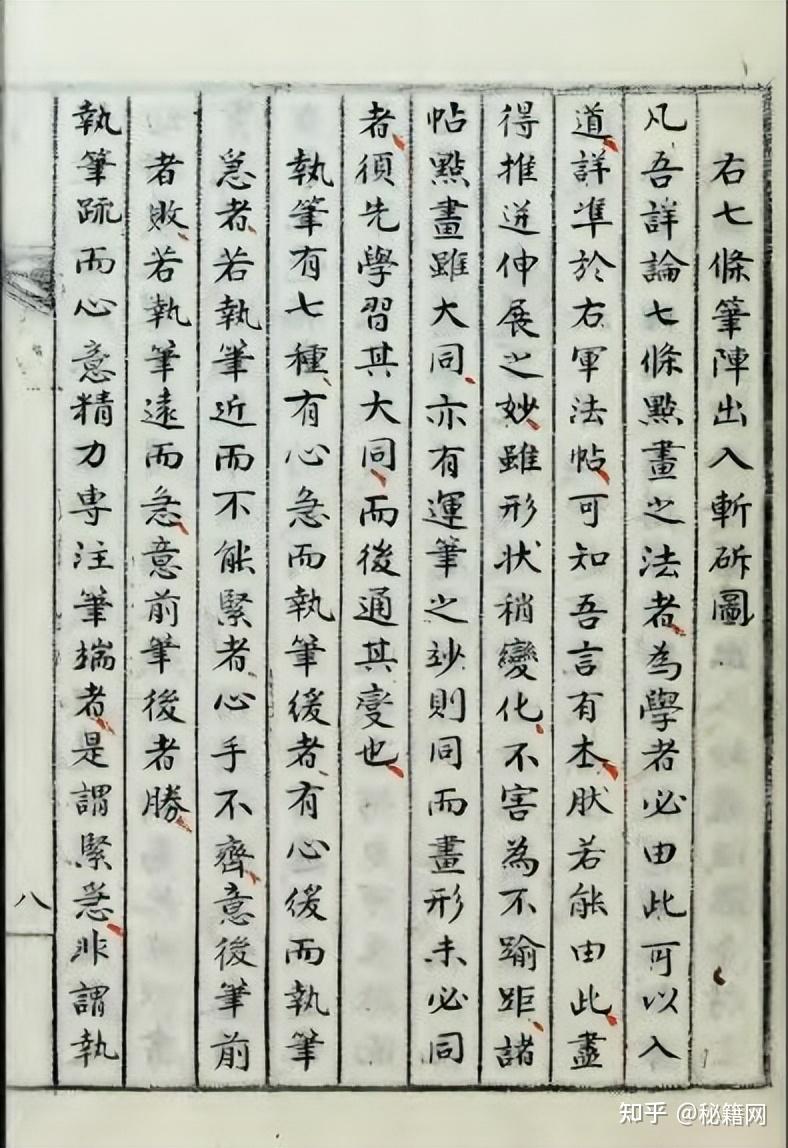 右七條筆陣出入斬斫圖
凡吾詳論七條點畫之法者為學者必由此可以入
道詳準於右軍法帖可知吾言有本肰若能由此盡
得推迸伸展之妙雖形狀稍變化不害為不踰距諸
帖點畫雖大同亦有運筆之玅則同而畫形未必同
者須先學習其大同而後通其變也
執筆有七種有心急而執筆緩者有心緩而執筆
急者若執筆近而不能緊者心手不齊意後筆前
者敗若執筆遠而急意前筆後者勝
執筆疏而心意精力專注筆端者是謂緊急非謂執
八
知乎 @秘籍网